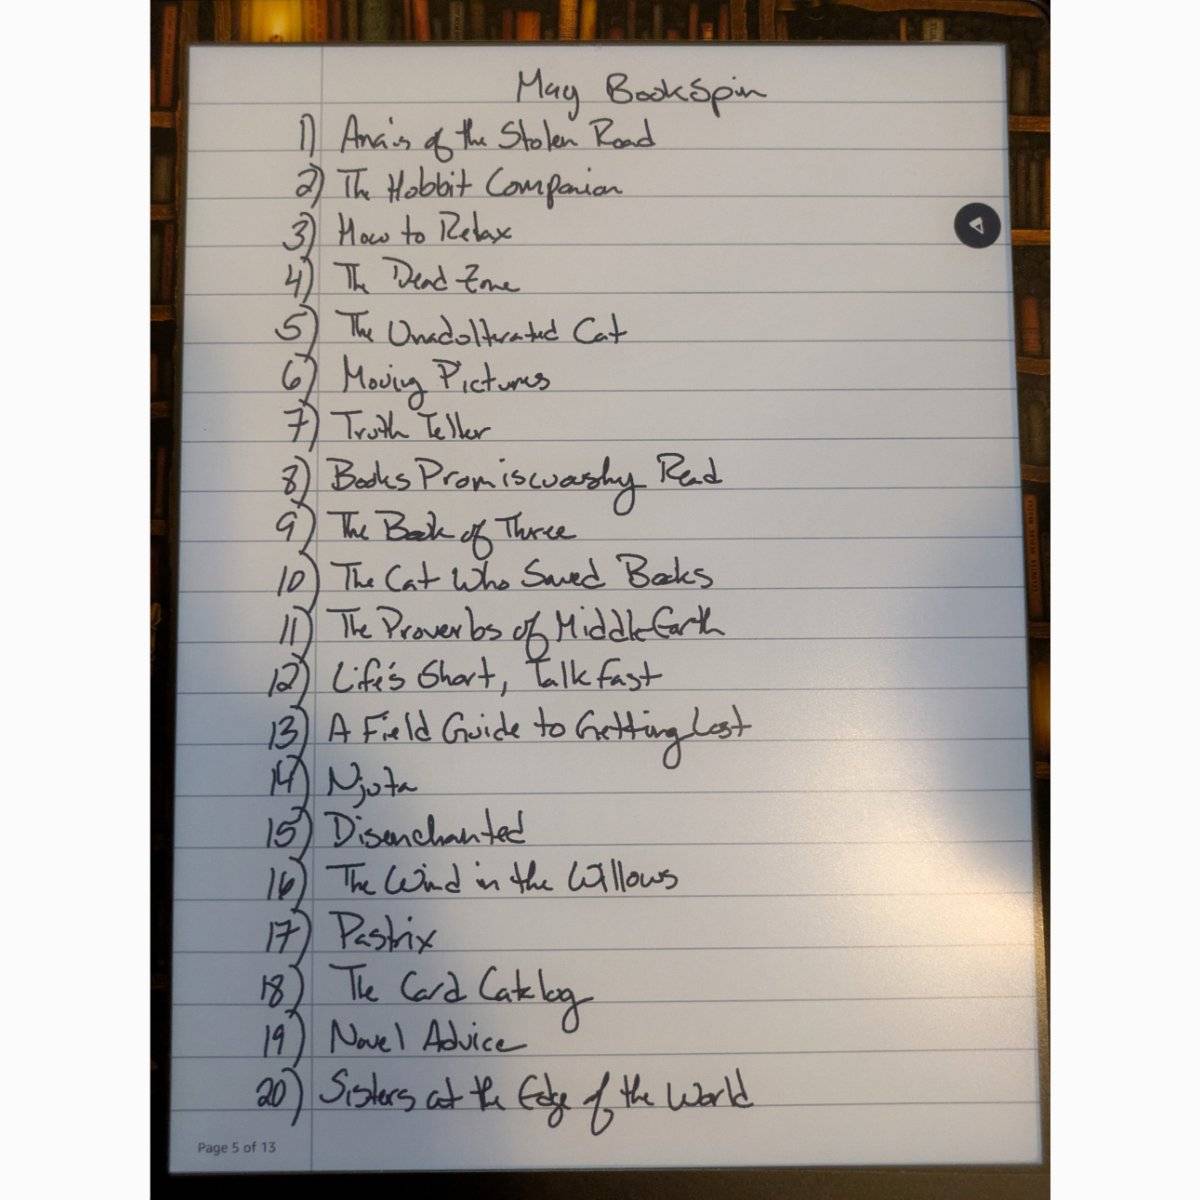 May BookSpin
1) Anais of the Stolen Road
2) The Hobbit Companion
3) How to Relax
4) The Dead Zone
5) The Unadulterated Cat
6) Moving Pictures
7) Truth Teller
8) Books Promiscuously Read
9) The Book of Three
10) The Cat Who Saved Books
11) The Proverbs of Middle-Earth
12) Life's Short, Talk Fast
13) A Field Guide to Getting Lost
14) Njuta
15) Disenchanted
16) The Wind in the Willows
17) Pastrix
18) The Card Catalog
19) Novel Advice
20) Sisters at the Edge of the World
Page 5 of 13